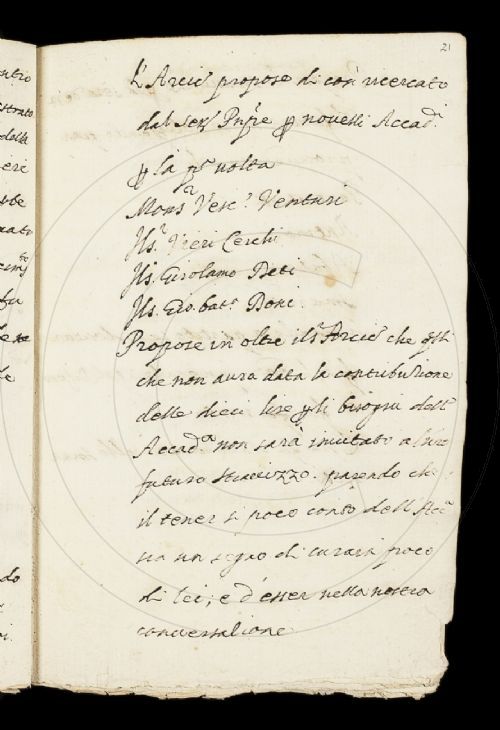 21
L'Arcic.º propose di con ricercato
dal Ser.º Prīpe p novelli Accad.i
p la p.ª volta
Mons.r Vesc.º Venturi
Il S.r Vieri Cerchi
Il S. Girolamo Deti
Il S. Gio. bat.ª Doni
Propose in oltre il S.r Arcic.º che q̄lli
che non aura data la contribuzione
delle dieci lire p gli bisogni dell'
Accad.ª non sarà invitato al
futuro stravizzo. parendo che
il tener si poco conto dell'Acc.ª
sia un segno di curarsi poco
di lei, e d'esser nella nostra
conversazione
ntro
strato
della
eri
be
fu
do